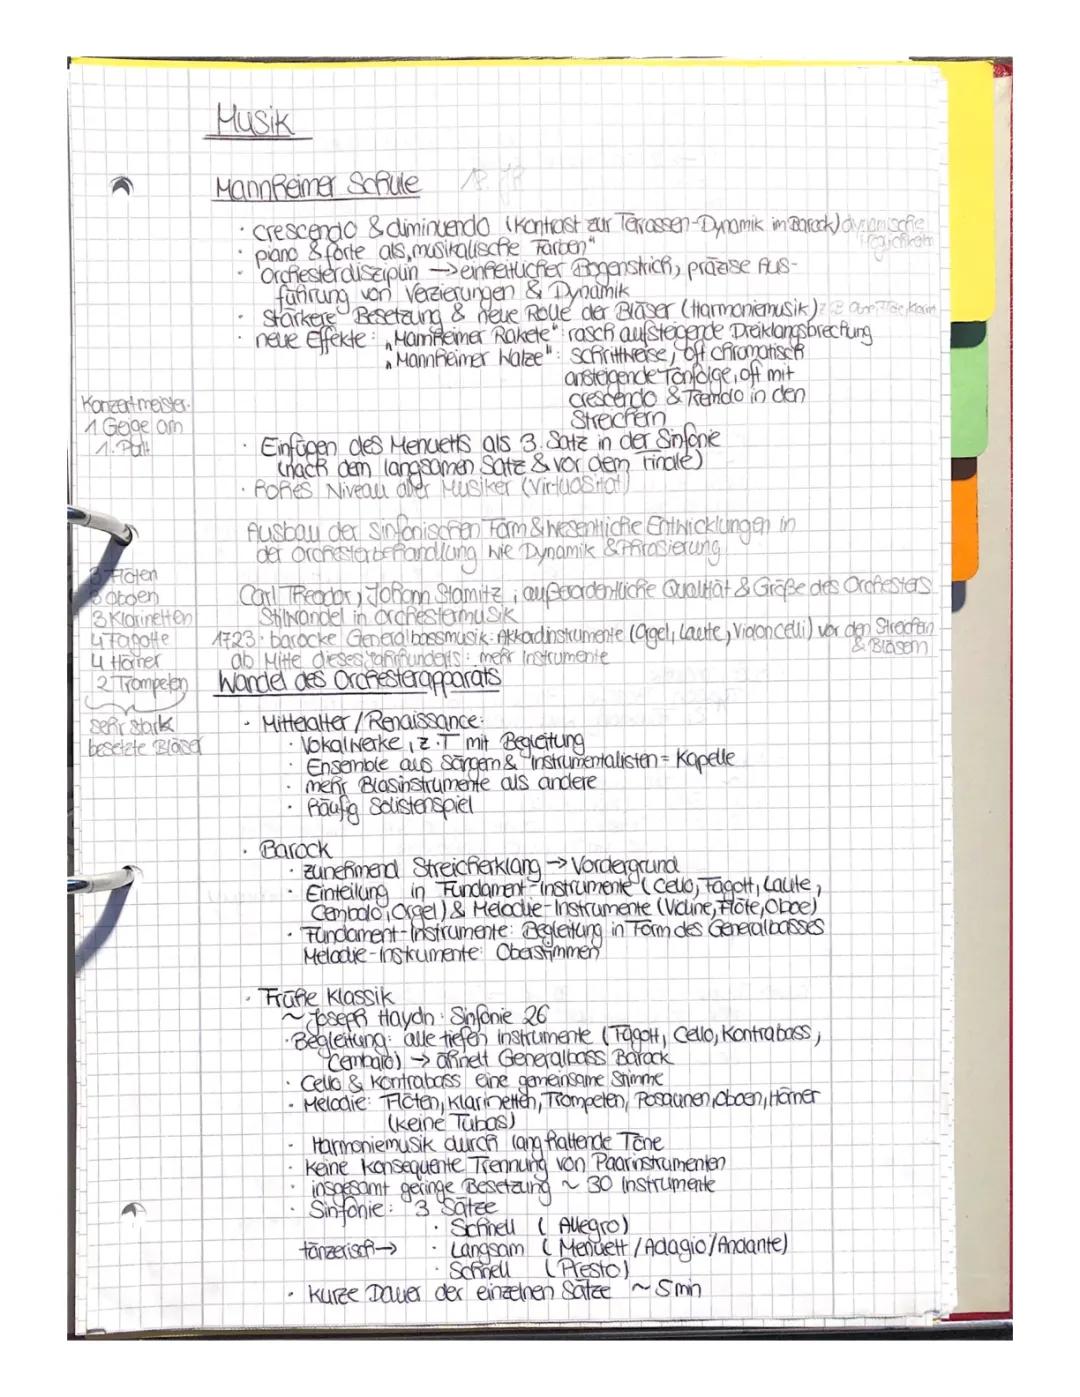 Musik
Mannheimer Schule
· crescendo & diminuendo (Kontrast zur Terrassen-Dynamik im Barock) dynamische
· piano & forte als „musikalische Farben"
· Orchesterdisziplin → einheitlicher Bogenstrich, präzise Aus-
führung von Verzierungen & Dynamik
· stärkere Besetzung & neue Rolle der Bläser (Harmoniemusik)
· neue Effekte: „Mannheimer Rakete": rasch aufsteigende Dreiklangsbrechung
„Mannheimer Walze": schrittweise, oft chromatisch
ansteigende Tonfolge, oft mit
crescendo & Tremolo in den
Streichern
Konzertmeister:
1. Geige am
1. Pult
· Einfügen des Menuetts als 3. Satz in der Sinfonie
(nach dem langsamen Satz & vor dem Finale)
· hohes Niveau aller Musiker (Virtuosität)
Ausbau der sinfonischen Form & wesentliche Entwicklungen in
der Orchesterbehandlung wie Dynamik & Phrasierung
3 Flöten
3 Oboen
3 Klarinetten
4 Fagotte
4 Hörner
2 Trompeten
sehr stark
besetzte Bläser
Carl Theodor, Johann Stamitz, außerordentliche Qualität & Größe des Orchesters
Stilwandel in Orchestermusik
1723: barocke Generalbassmusik: Akkordinstrumente (Orgel, Laute, Violoncelli) vor den Streichern
& Bläsern
ab Mitte dieses Jahrhunderts: mehr Instrumente
Wandel des Orchesterapparats
· Mittelalter / Renaissance:
· Vokalwerke, z.T mit Begleitung
· Ensemble aus Sängern & Instrumentalisten = Kapelle
· mehr Blasinstrumente als andere
· häufig Solistenspiel
· Barock
· zunehmend Streicherklang → Vordergrund
· Einteilung in Fundament-Instrumente (Cello, Fagott, Laute,
Cembalo, Orgel) & Melodie-Instrumente (Violine, Flöte, Oboe)
· Fundament-Instrumente: Begleitung in Form des Generalbasses
Melodie-Instrumente: Oberstimmen
· Frühe Klassik
~ Joseph Haydn: Sinfonie 26
· Begleitung: alle tiefen Instrumente (Fagott, Cello, Kontrabass,
Cembalo) → ähnelt Generalbass Barock
· Cello & Kontrabass eine gemeinsame Stimme
· Melodie: Flöten, Klarinetten, Trompeten, Posaunen, Oboen, Hörner
(keine Tubas)
· Harmoniemusik durch lang haltende Töne
· Keine konsequente Trennung von Paarinstrumenten
· insgesamt geringe Besetzung ~ 30 Instrumente
· Sinfonie: 3 Sätze
· Schnell (Allegro)
tänzerisch → · Langsam (Menuett / Adagio / Andante)
· Schnell (Presto)
· kurze Dauer der einzelnen Sätze ~ 5 min